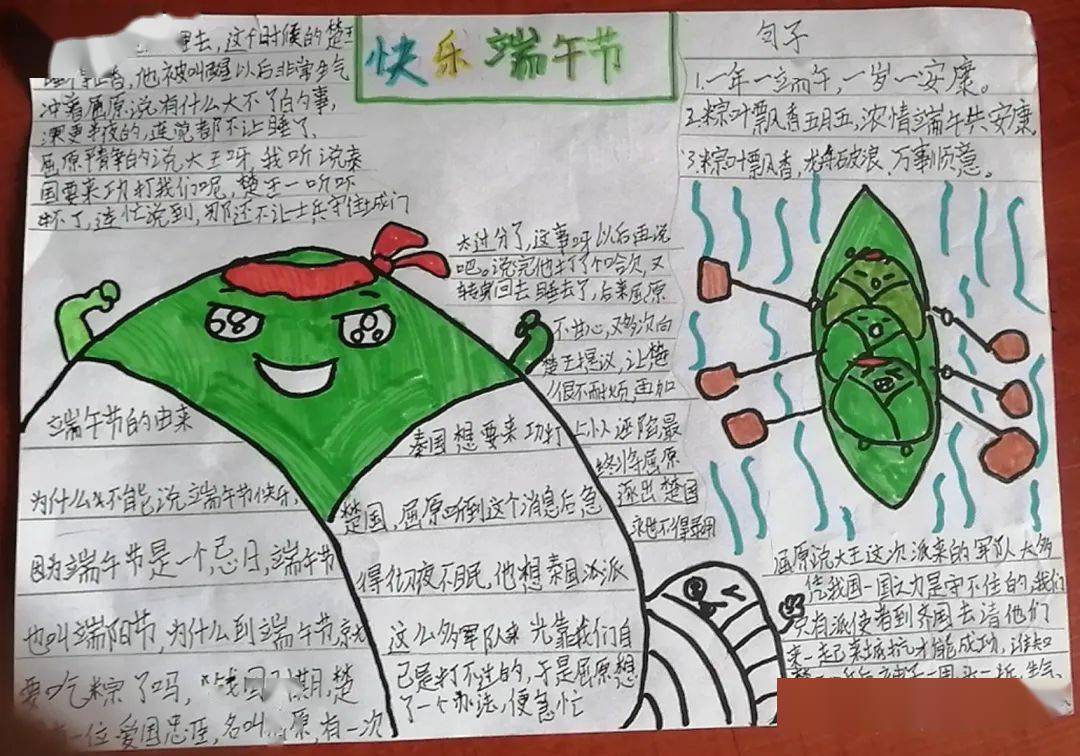 快乐端午节
端午节的由来
为什么我不能说端午节快乐,
因为端午节是一个忌日,端午节
也叫端阳节,为什么到端午节就
要吃粽了吗,"战国 期,楚
一位爱国忠臣,名叫 原,有一次
秦国想要来功打
楚国,屈原听到这个消息后急
得彻夜不眠,他想秦国派
这么多军队来 光靠我们自
己是打不过的,于是屈原想
了一个办法,便急忙
去,这个时候的楚王
他被叫醒以后非常生气
冲着屈原说有什么大不了的事,
深更半夜的,连觉都不让睡了,
屈原 的说大王呀,我听说秦
国要来功打我们呢,楚王一听吓
坏了,连忙说到,那还不让士兵守住城门
屈原说大王这次派来的军队太多
凭我国一国之力是守不住的,我们
只有派使者到齐国去请他们
来一起 才能成功,谁知
太过分了,这事呀以后再说
吧。说完他打了个哈欠,又
转身回去睡去了,后来屈原
不甘心,又多次向
楚王提议,让楚
很不耐烦,再加
上小人诬陷最
终将屈原
逐出楚国
来也不得录用
句子
1.一年一端午,一岁一安康。
2.粽叶飘香五月五,浓情端午共安康,
3.粽叶飘香,龙舟破浪、万事顺意。